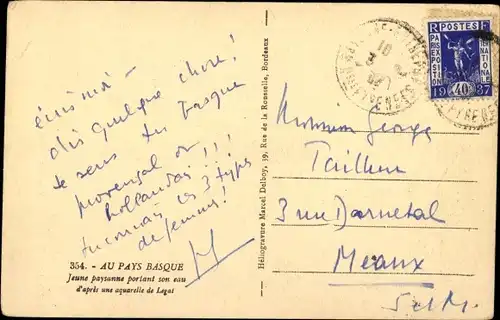 écris moi -
dis quelque chose!
te sens tu Basque
provençal ou
hollandais!!!
tu connais les 3 types
de femmes!
M
354. - AU PAYS BASQUE
Jeune paysanne portant son eau
d'après une aquarelle de Legat
Héliogravure Marcel Delboy, 19, Rue de la Rousselle, Bordeaux
RF POSTES
EXPOSITION INTERNATIONALE
PARIS
1937
40c
Monsieur George
Taillen
3 rue Darnetal
Meaux
S et M.